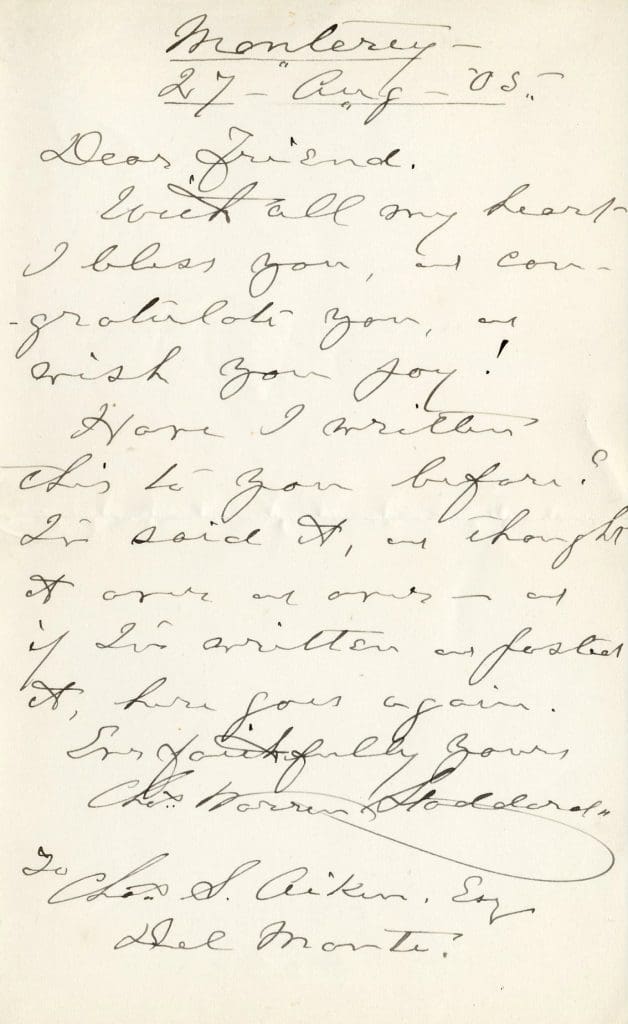 Monterey -
27 - Aug - '05.
Dear Friend.
With all my heart
I bless you, and con-
-gratulate you, and
wish you joy!
Have I written
this to you before?
I've said it, and thought
it over and over - and
if I've written and posted
it, here goes again.
Ever faithfully yours
Chas. Warren Stoddard
To
Chas. S. Aiken. Esq
Del Monte.